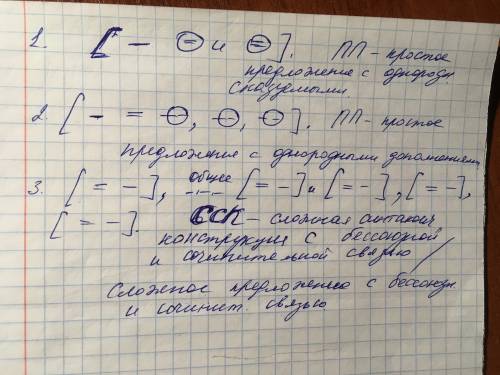 1. [ — ⊖ и ⊖ ]. ПП - простое
предложение с однородн
сказуемыми
2. [ - = ⊖, ⊖, ⊖ ]. ПП - простое
предложение с однородными дополнениями
3. [ = - ], общее [ = - ] и [ = - ], [ = - ],
[ = - ]. ССК - сложная синтаксич
конструкция с бессоюзной
и сочинительной связью /
Сложное предложение с бессоюзн
и сочинит. связью